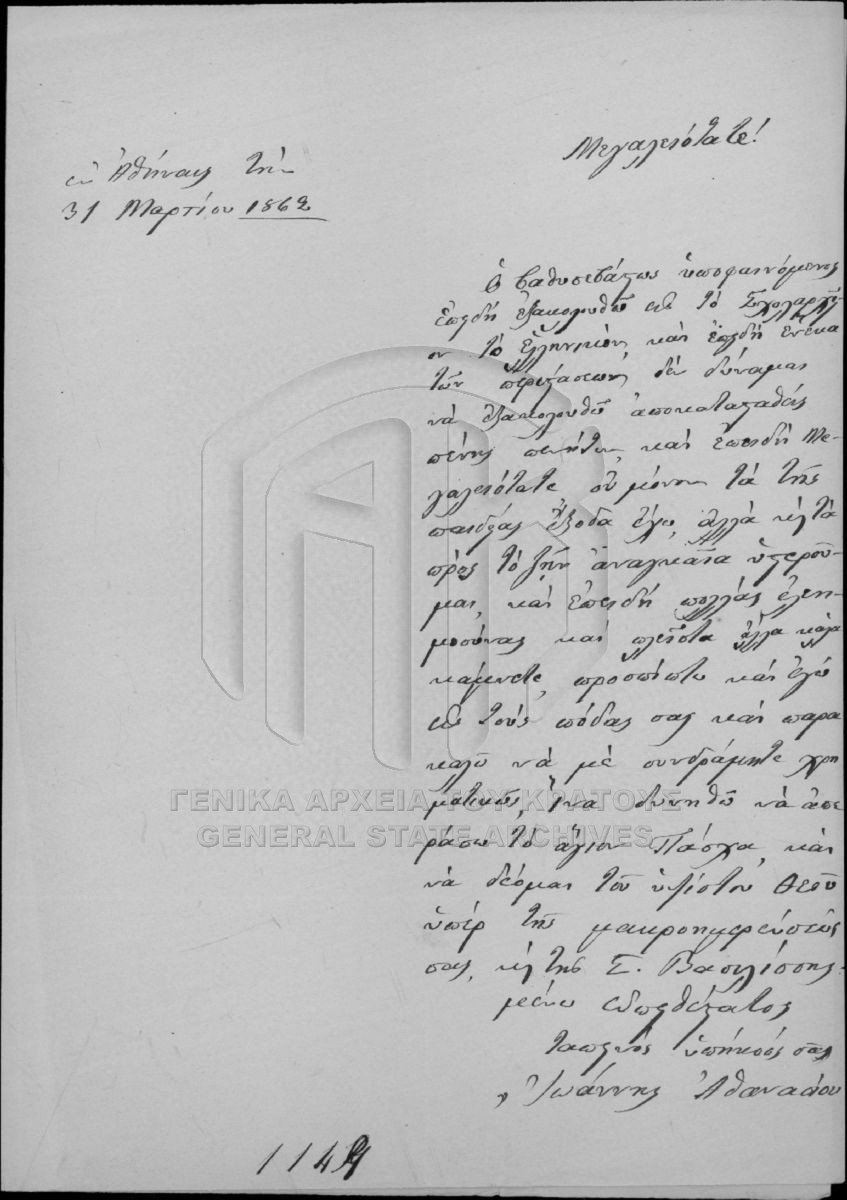 Μεγαλειότατε!
ἐν Ἀθήναις τὴν
31 Μαρτίου 1862
Ὁ βαθυσεβάστως ὑποφαινόμενος
ἐπειδὴ ἐξακολουθῶ εἰς τὸ Σχολαρχεῖ-
ον τὸ Ἑλληνικὸν, καὶ ἐπειδὴ ἕνεκα
τῶν περιστάσεων, δὲν δύναμαι
νὰ ἐξακολουθῶ ἀποκατασταθεὶς
πένης πενήτων, καὶ ἐπειδὴ Με-
γαλειότατε οὐ μόνον τὰ τῆς
παιδείας ἔξοδα ἐγὼ, ἀλλὰ κ τὰ
πρὸς τὸ ζῆν ἀναγκαῖα ὑστεροῦ-
μαι, καὶ ἐπειδὴ πολλὰς ἐλεη-
μοσύνας καὶ πλεῖστα ἄλλα καλὰ
κάμνετε, προσπίπτω καὶ ἐγὼ
εἰς τοὺς πόδας σας καὶ παρα
καλῶ νὰ μὲ συνδράμητε χρη
ματικῶς, ἵνα δυνηθῶ νὰ ἀπε
ράσω τὸ ἅγιον Πάσχα, καὶ
νὰ δέομαι τοῦ ὑψίστου Θεοῦ
ὑπὲρ τῆς μακροημερεύσεώς
σας, κ τῆς Σ. Βασιλίσσης.
μένω εὐπειθέστατος
ταπεινὸς ὑπήκοός σας
Ἰωάννης Ἀθανασίου
ΓΕΝΙΚΑ ΑΡΧΕΙΑ ΤΟΥ ΚΡΑΤΟΥΣ
GENERAL STATE ARCHIVES